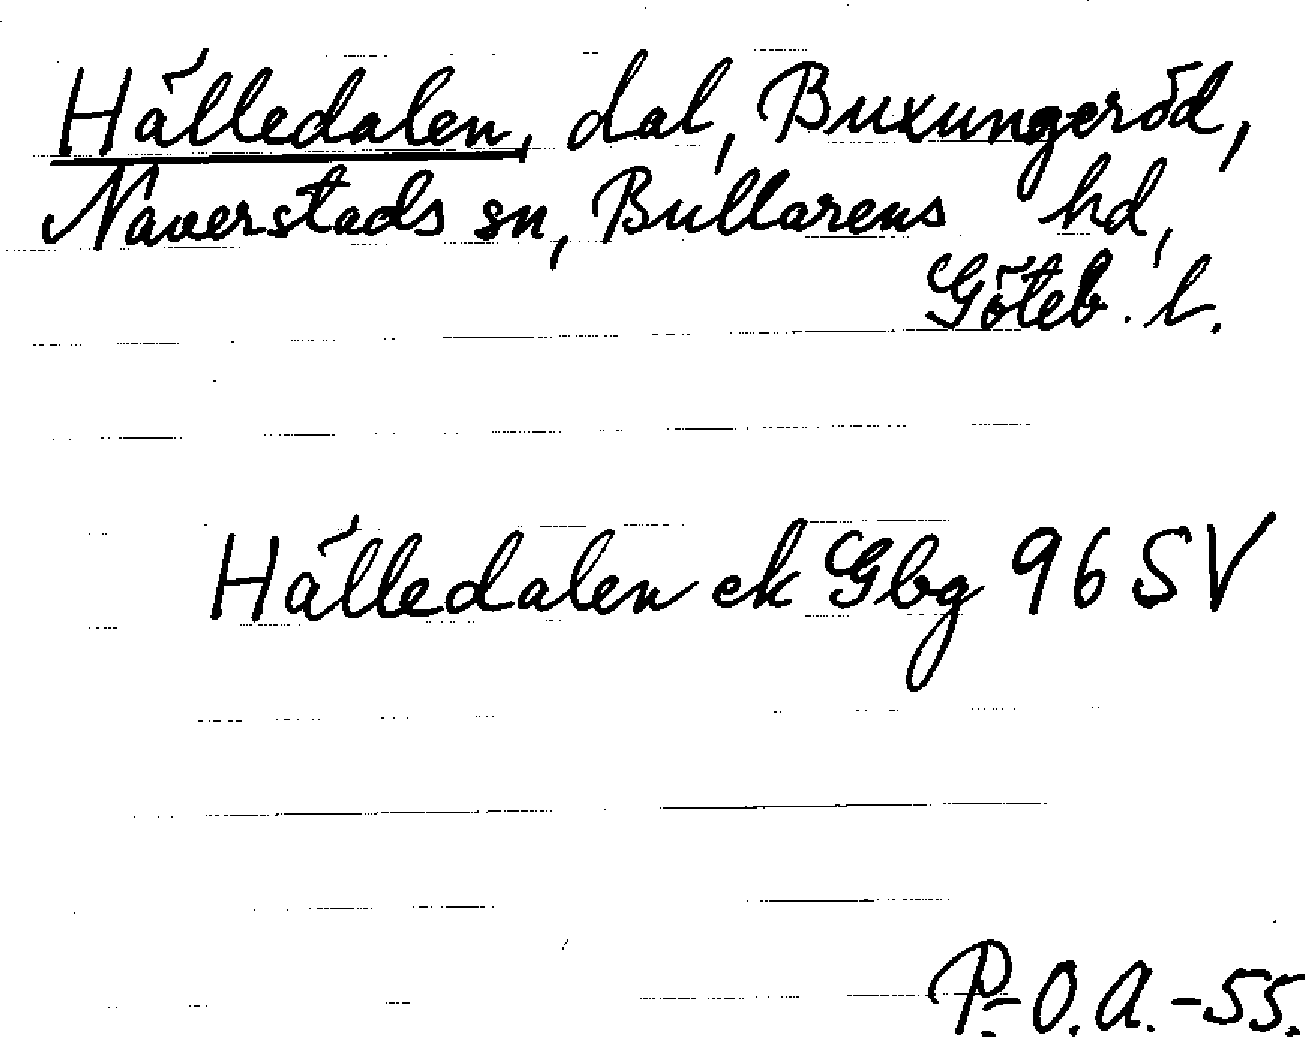 Hälledalen, dal, Buxungeröd,
Naverstads sn, Bullarens hd,
Göteb. l.
Hälledalen ek Gbg 96 SV
P.-O.A.-55.